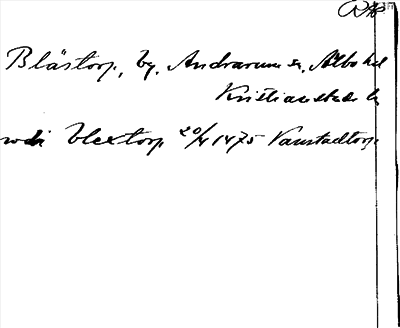 Blästorp, by, Andrarum sn, Albo hd
Kristianstads l
Vlextorp 20/4 1475 Vanstadtorp